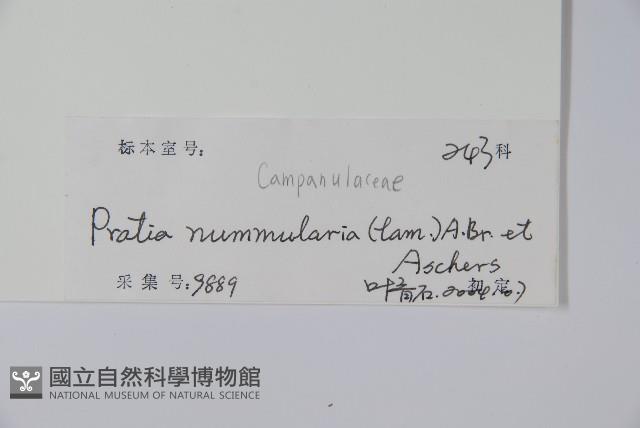 标本室号: 243科
Campanulaceae
Pratia nummularia (Lam.) A.Br. et
Aschers
采集号: 9889 初定
國立自然科學博物館
NATIONAL MUSEUM OF NATURAL SCIENCE